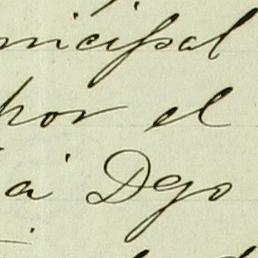 nicipal
por el
á Dgo